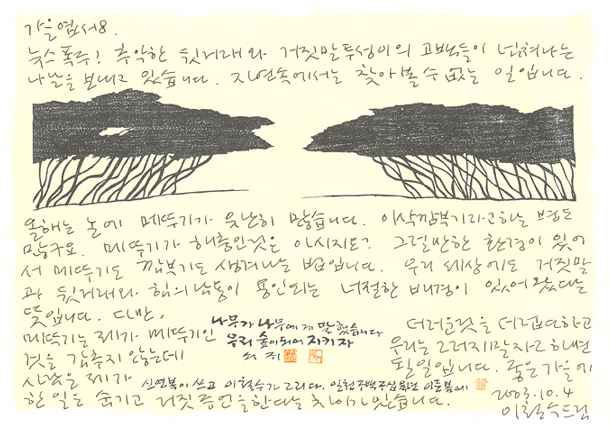 가을엽서8.
뉴스폭주! 추악한 뒷거래와 거짓말투성이의 고백들이 넘쳐나는
나날을 보내고 있습니다. 자연속에서는 찾아볼 수 없는 일입니다.
올해는 논에 메뚜기가 유난히 많습니다. 이삭깜부기라고하는 병도
많구요. 메뚜기가 해충인것은 아시지요? 그럴만한 환경이 있어
서 메뚜기도 깜부기도 생겨나는 법입니다. 우리 세상에도 거짓말
과 뒷거래와 힘의 남용이 용인되는 너절한 배경이 있어왔다는
뜻입니다. 다만,
메뚜기는 제가 메뚜기인
것을 감추지 않는데
사람은 제가
한 일을 숨기고 거짓증언을한다는 차이가 있습니다.
나무가 나무에게 말했습니다
우리 숲이되어 지키자
신연복이 쓰고 이철수가 그리다.
더러운것을 더럽다하고
우리는 그러지말자고 하면
될일입니다. 좋은가을에
2003.10.4
이철수드림